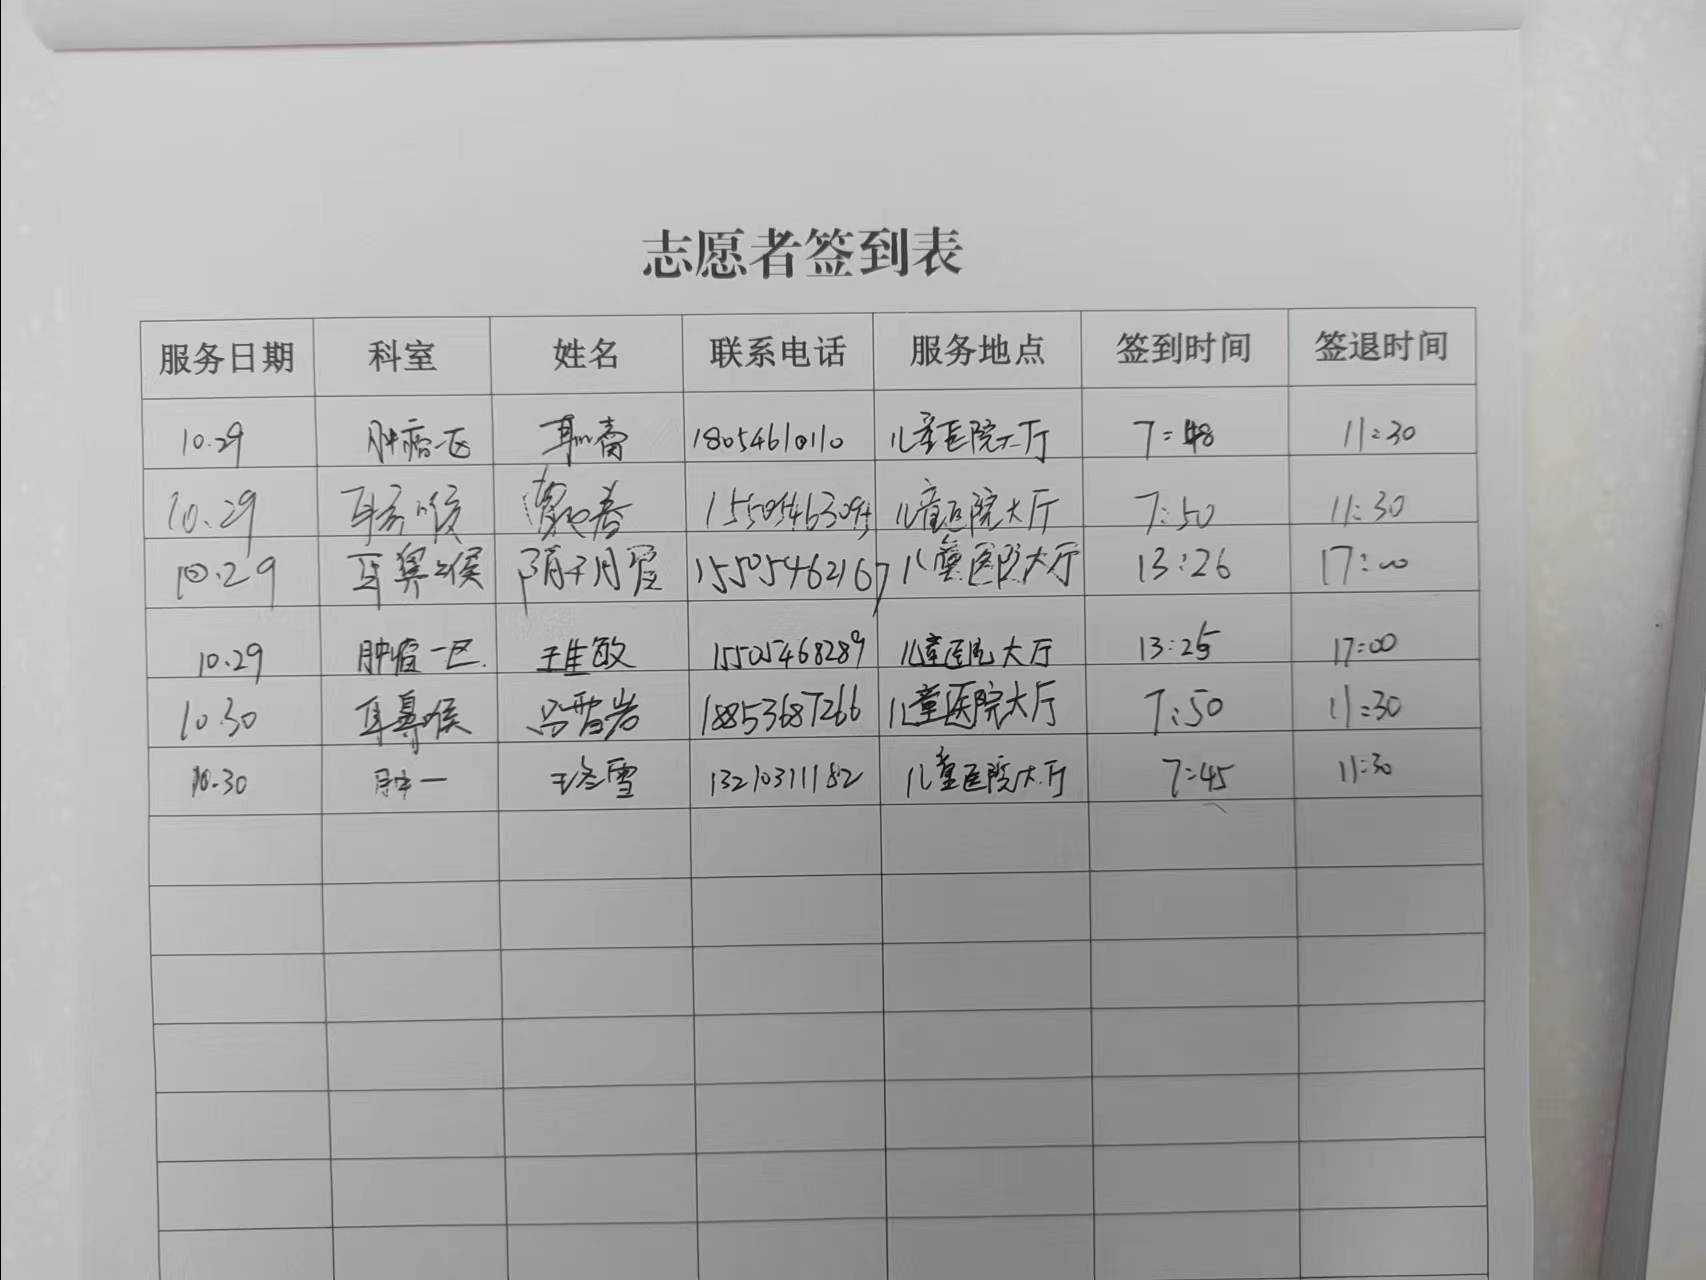 志愿者签到表
服务日期 科室 姓名 联系电话 服务地点 签到时间 签退时间
10.29 肿瘤一区 18054610110 儿童医院大厅 7:48 11:30
10.29 耳鼻喉 儿童医院大厅 7:50 11:30
10.29 耳鼻喉 15505462167 儿童医院大厅 13:26 17:00
10.29 肿瘤一区. 王生敏 15505468289 儿童医院大厅 13:25 17:00
10.30 耳鼻喉 马雪岩 18853687266 儿童医院大厅 7:50 11:30
10.30 肿一 王冬雪 13210311182 儿童医院大厅 7:45 11:30